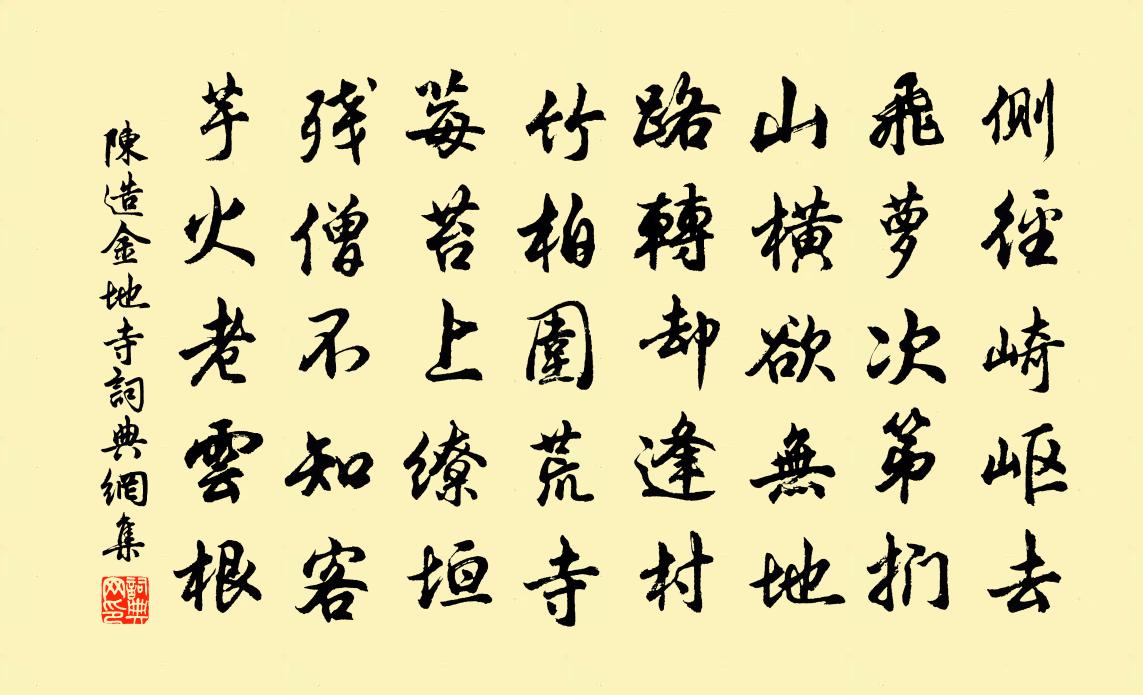 側徑崎岖去
飛萝次第扪
山橫欲無地
路轉却逢村
竹柏圍荒寺
莓苔上繚垣
残僧不知客
芋火老雲根
陳造金地寺詞典網集
詞典网印